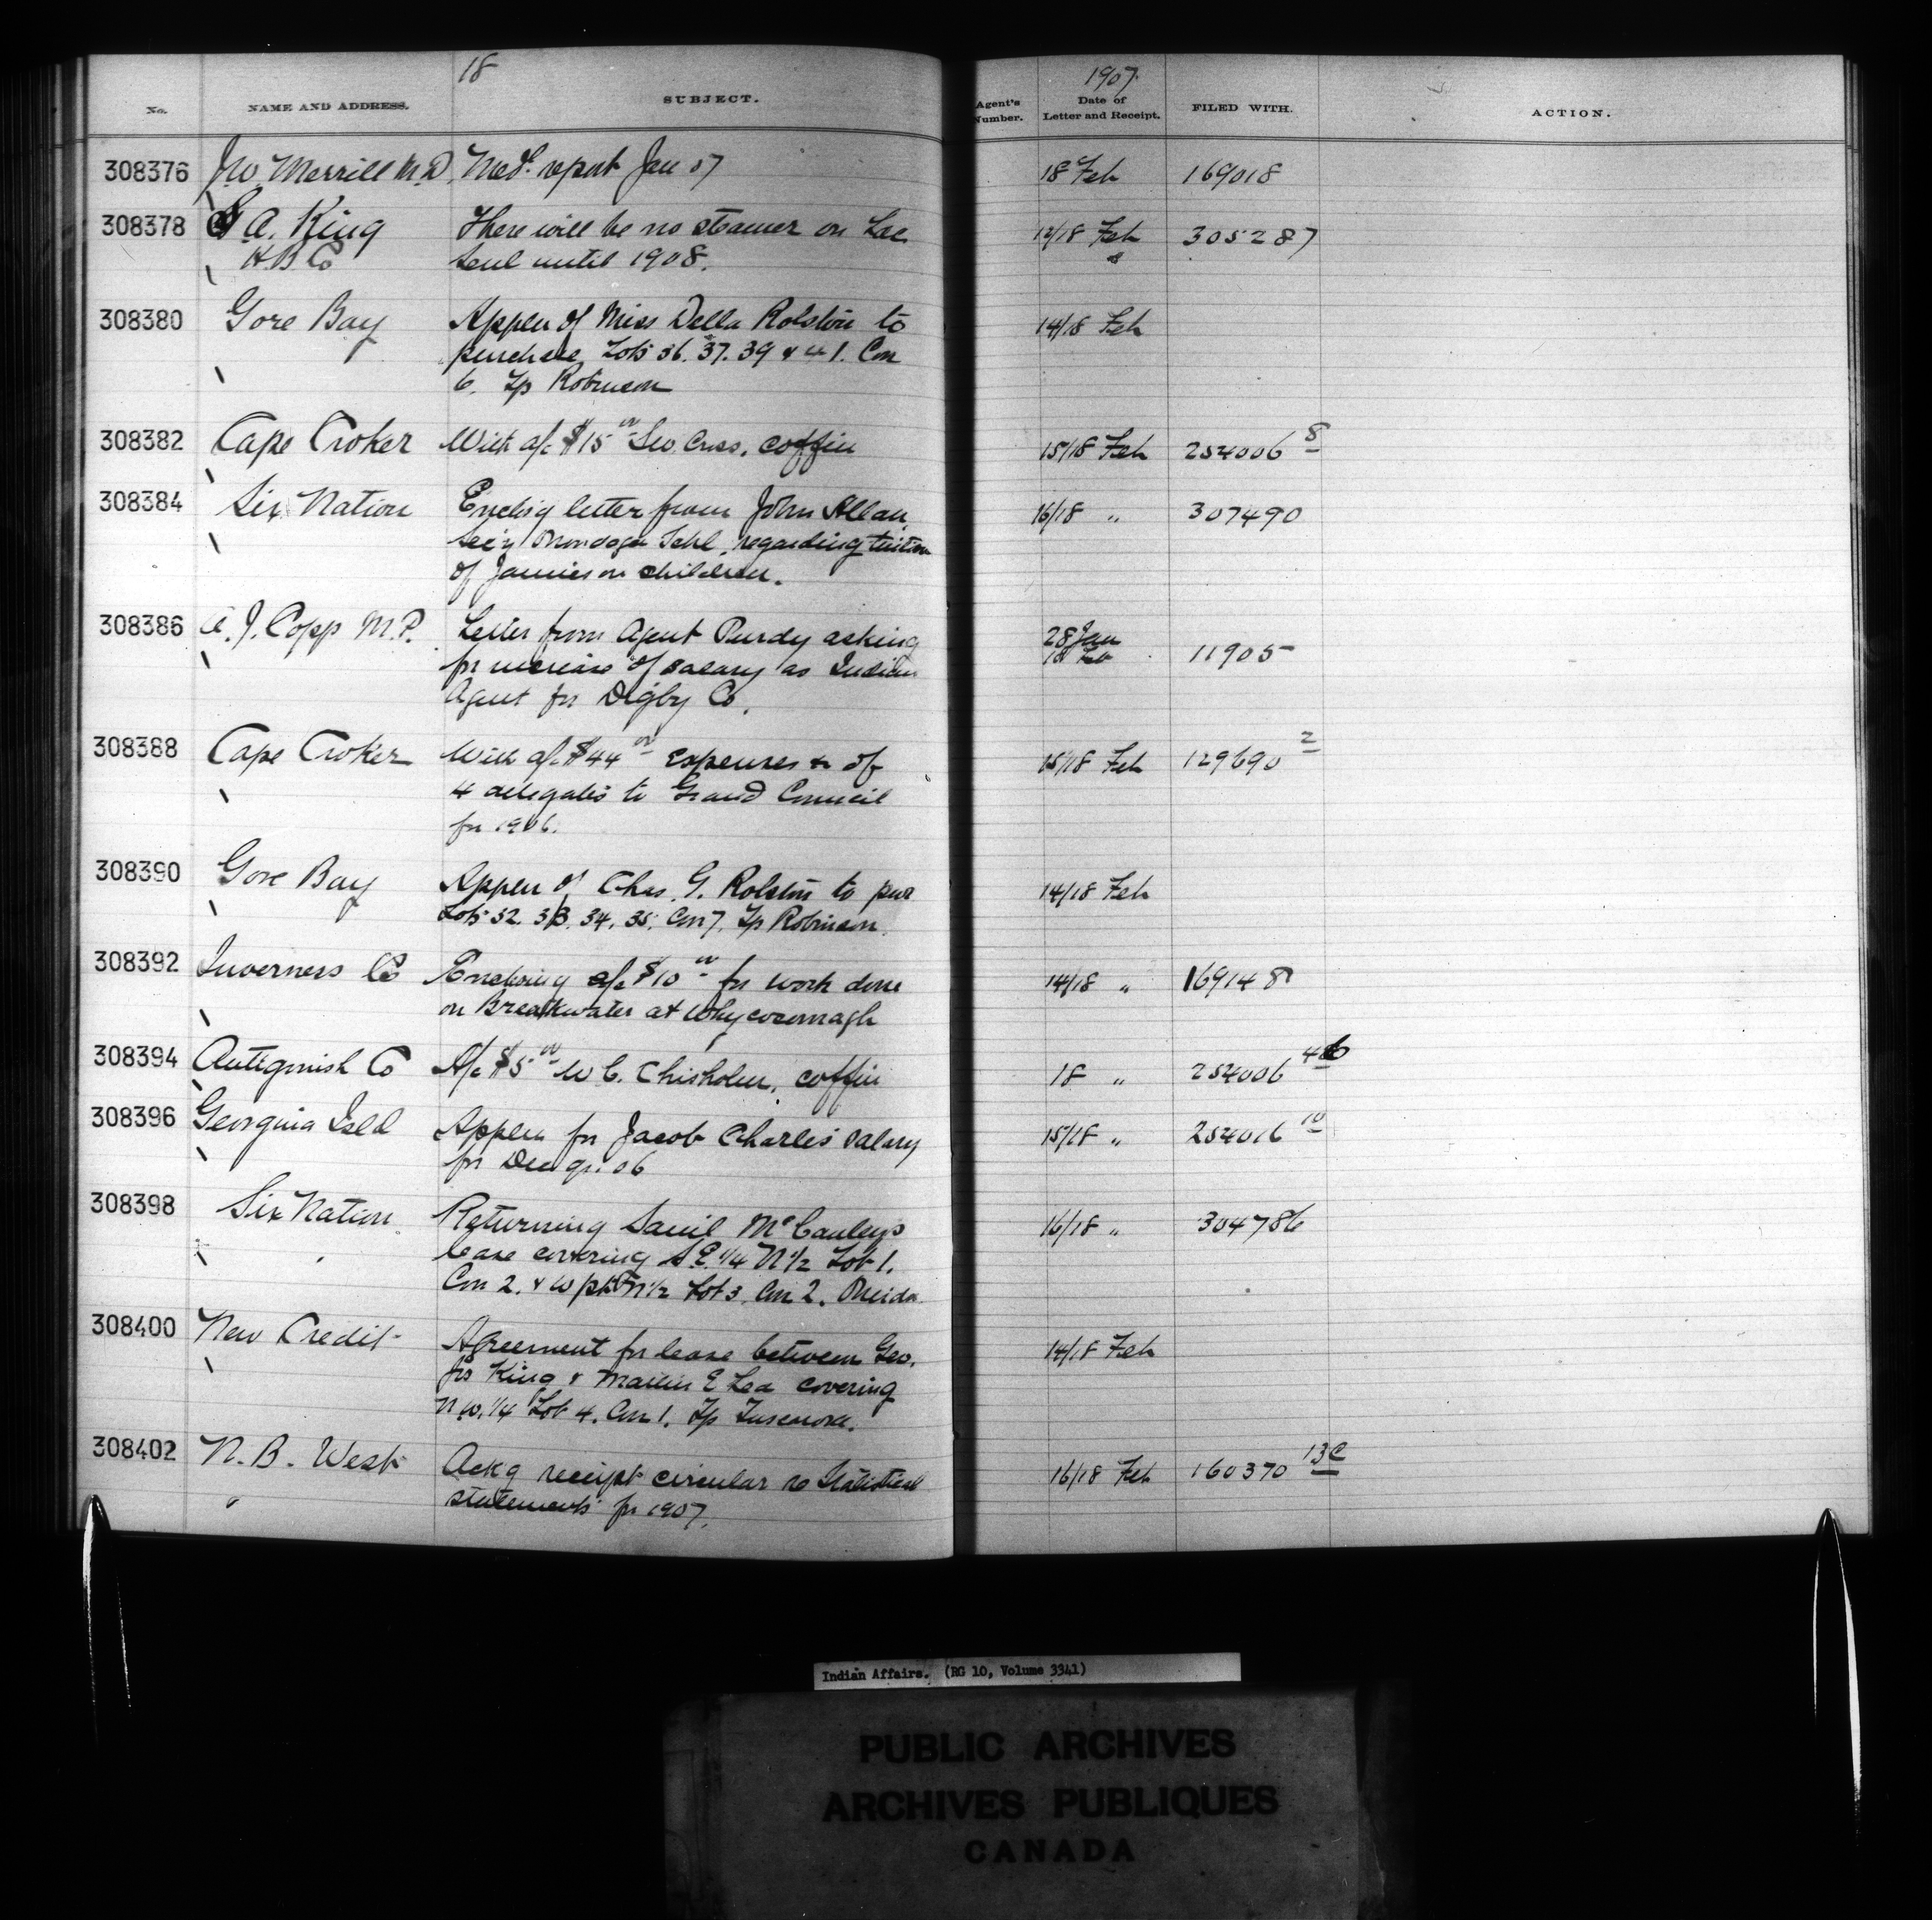 18
1907
No.
NAME AND ADDRESS.
SUBJECT.
Agent's Number.
Date of Letter and Receipt.
FILED WITH.
ACTION.
308376 J.W. Merrill M.D. Med. report Jan 07 18 Feb 169018
308378 A. King There will be no steamer on Lac 12/18 Feb 305287
H.B. Co Seul until 1908.
308380 Gore Bay Applcn of Miss Della Rolston to 14/18 Feb
purchase Lots 36. 37. 39 & 41. Con
6. Tp Robinson
308382 Cape Croker With a/c $15 00 Geo. Cress. coffin 15/18 Feb 254006 8
308384 Six Nation Enclos'g letter from John Allan 16/18 " 307490
Sec'y Onondaga Schl. regarding tuition
of Jamieson children.
308386 A. J. Copp M.P. Letter from Agent Purdy asking 28 Jan 18 Feb 11905
for increase of salary as Indian
Agent for Digby Co.
308388 Cape Croker With a/c $44 00 expenses of 15/18 Feb 129690 2
4 delegates to Grand Council
for 1906.
308390 Gore Bay Applcn of Chas. G. Rolston to pur 14/18 Feb
Lots 32. 33. 34. 35. Con 7. Tp Robinson.
308392 Inverness Co Enclosing a/c $10 00 for work done 14/18 " 169148
on Breakwater at Whycocomagh
308394 Antigonish Co A/c $5 00 W C. Chisholm. coffin 18 " 254006
308396 Georgina Isld Applcn for Jacob Charles' salary 15/18 " 254016 10
for Dec qr. 06
308398 Six Nation Returning Saml McCauleys 16/18 " 304786
lease covering S.E. 1/4 N 1/2 Lot 1.
Con 2. & W pt N 1/2 Lot 3. Con 2. Oneida
308400 New Credit Agreement for lease between Geo. 14/18 Feb
King & E Lea covering
N W. 1/4 Lot 4. Con 1. Tp Tuscarora.
308402 N. B. West Ack'g receipt circular re Statistical 16/18 Feb 160370 13C
statements for 1907.
Indian Affairs. (RG 10, Volume 3341)
PUBLIC ARCHIVES
ARCHIVES PUBLIQUES
CANADA